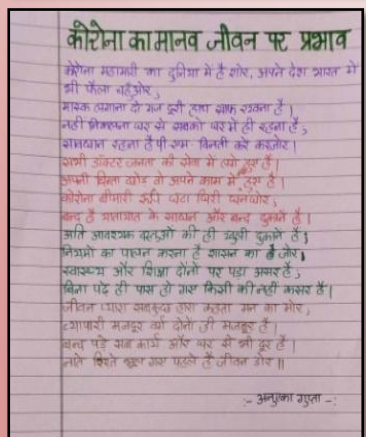 कोरोना का मानव जीवन पर प्रभाव
कोरोना महामारी का दुनिया में है शोर, अपने देश भारत में
भी फैला चहुँओर,
मास्क लगाना दो गज दूरी हाथ साफ रखना है।
नहीं निकलना घर से सबको घर में ही रहना है,
सावधान रहना है पी एम- विनती करे करजोर।
सभी डॉक्टर जनता की सेवा में लगे हुए हैं।
अपनी चिंता छोड़ वो अपने काम में हुए हैं।
कोरोना बीमारी रूपी घटा घिरी घनघोर,
बन्द है यातायात के साधन और बन्द दुकाने हैं।
अति आवश्यक वस्तुओं की ही खुली दुकाने हैं,
नियमों का पालन करना है शासन का है जोर।
स्वास्थ्य और शिक्षा दोनों पर पड़ा असर है,
बिना पढ़े ही पास हो गए किसी की नहीं कसर है।
जीवन प्यारा सबकुछ हारा कहता मन का मोर,
व्यापारी मजदूर वर्ग दोनों ही मजबूर है।
बन्द पड़े सब कार्य और घर से भी दूर हैं।
नाते रिश्ते भूल गए पहले है जीवन डोर॥
:- अनुष्का गुप्ता -: